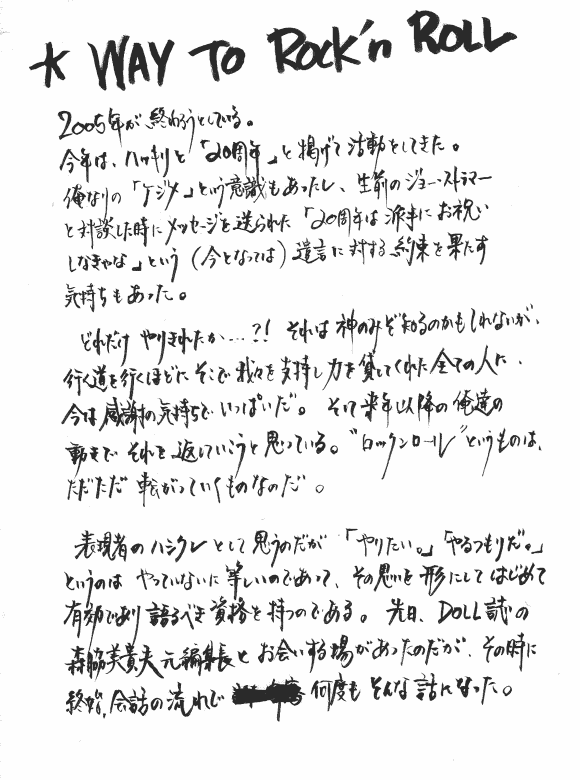 * WAY TO Rock'n ROLL
2005年が終わろうとしている。
今年は、ハッキリと「20周年」と掲げて活動をしてきた。
俺なりの「ケジメ」という意識もあったし、生前のジョー・ストラマー
と対談した時にメッセージを送られた「20周年は派手にお祝い
しなきゃな」という(今となっては)遺言に対する約束を果たす
気持ちもあった。
どれだけやりきれたか…?! それは神のみぞ知るのかもしれないが、
行く道を行くほどにそこで我々を支持し力を貸してくれた全ての人に、
今は感謝の気持ちでいっぱいだ。そして来年以降の俺達の
動きでそれを返していこうと思っている。"ロックンロール"というものは、
ただただ転がっていくものなのだ。
表現者のハシクレとして思うのだが「やりたい。」「やるつもりだ。」
というのはやっていないに等しいのであって、その思いを形にしてはじめて
有効であり語るべき資格を持つのである。先日、DOLL誌の
森脇美貴夫元編集長とお会いする場があったのだが、その時に
終始、会話の流れで 何度もそんな話になった。